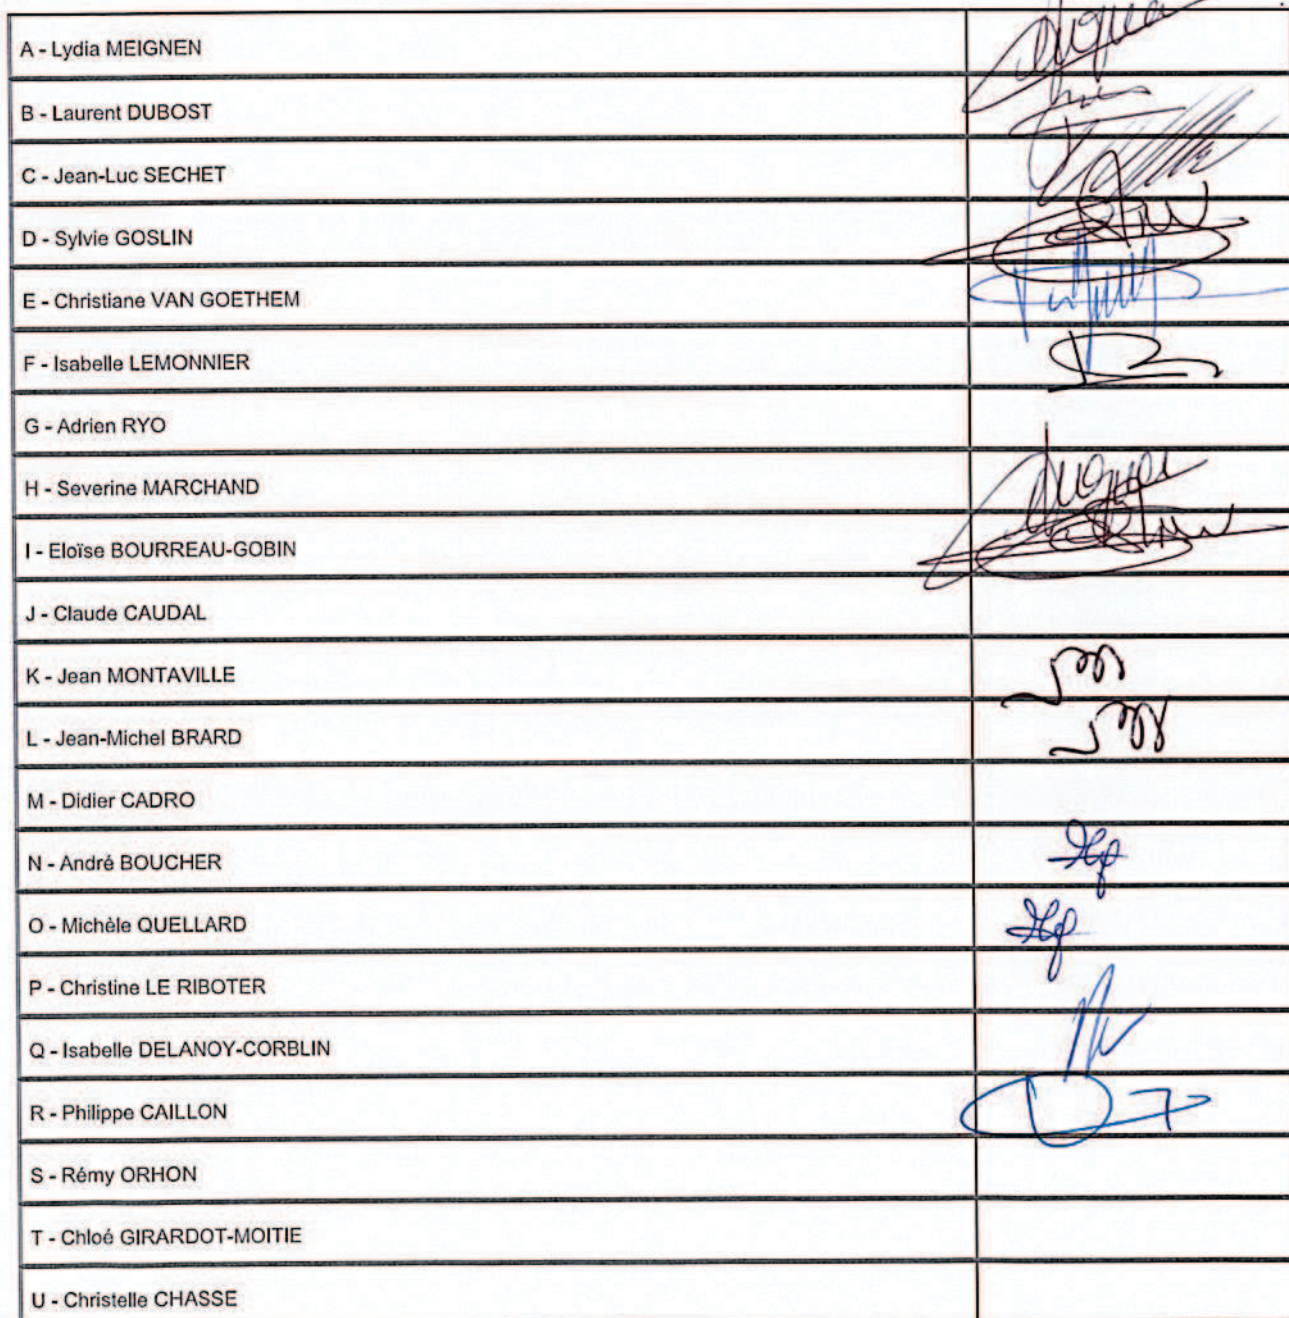 A - Lydia MEIGNEN
B - Laurent DUBOST
C - Jean-Luc SECHET
D - Sylvie GOSLIN
E - Christiane VAN GOETHEM
F - Isabelle LEMONNIER
G - Adrien RYO
H - Severine MARCHAND
I - Eloïse BOURREAU-GOBIN
J - Claude CAUDAL
K - Jean MONTAVILLE
L - Jean-Michel BRARD
M - Didier CADRO
N - André BOUCHER
O - Michèle QUELLARD
P - Christine LE RIBOTER
Q - Isabelle DELANOY-CORBLIN
R - Philippe CAILLON
S - Rémy ORHON
T - Chloé GIRARDOT-MOITIE
U - Christelle CHASSE